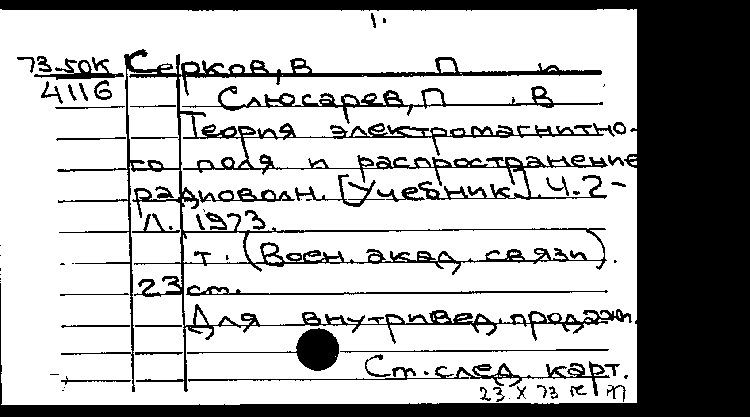 1.
73-50К Серков, В П и
4116 Слюсарев, П . В
Теория электромагнитно-
го поля и распространение
радиоволн. [Учебник]. Ч. 2-
Л. 1973.
т. (Воен. акад. связи).
23 см.
Для внутривед. продажи.
См. след. карт.
23 X 73